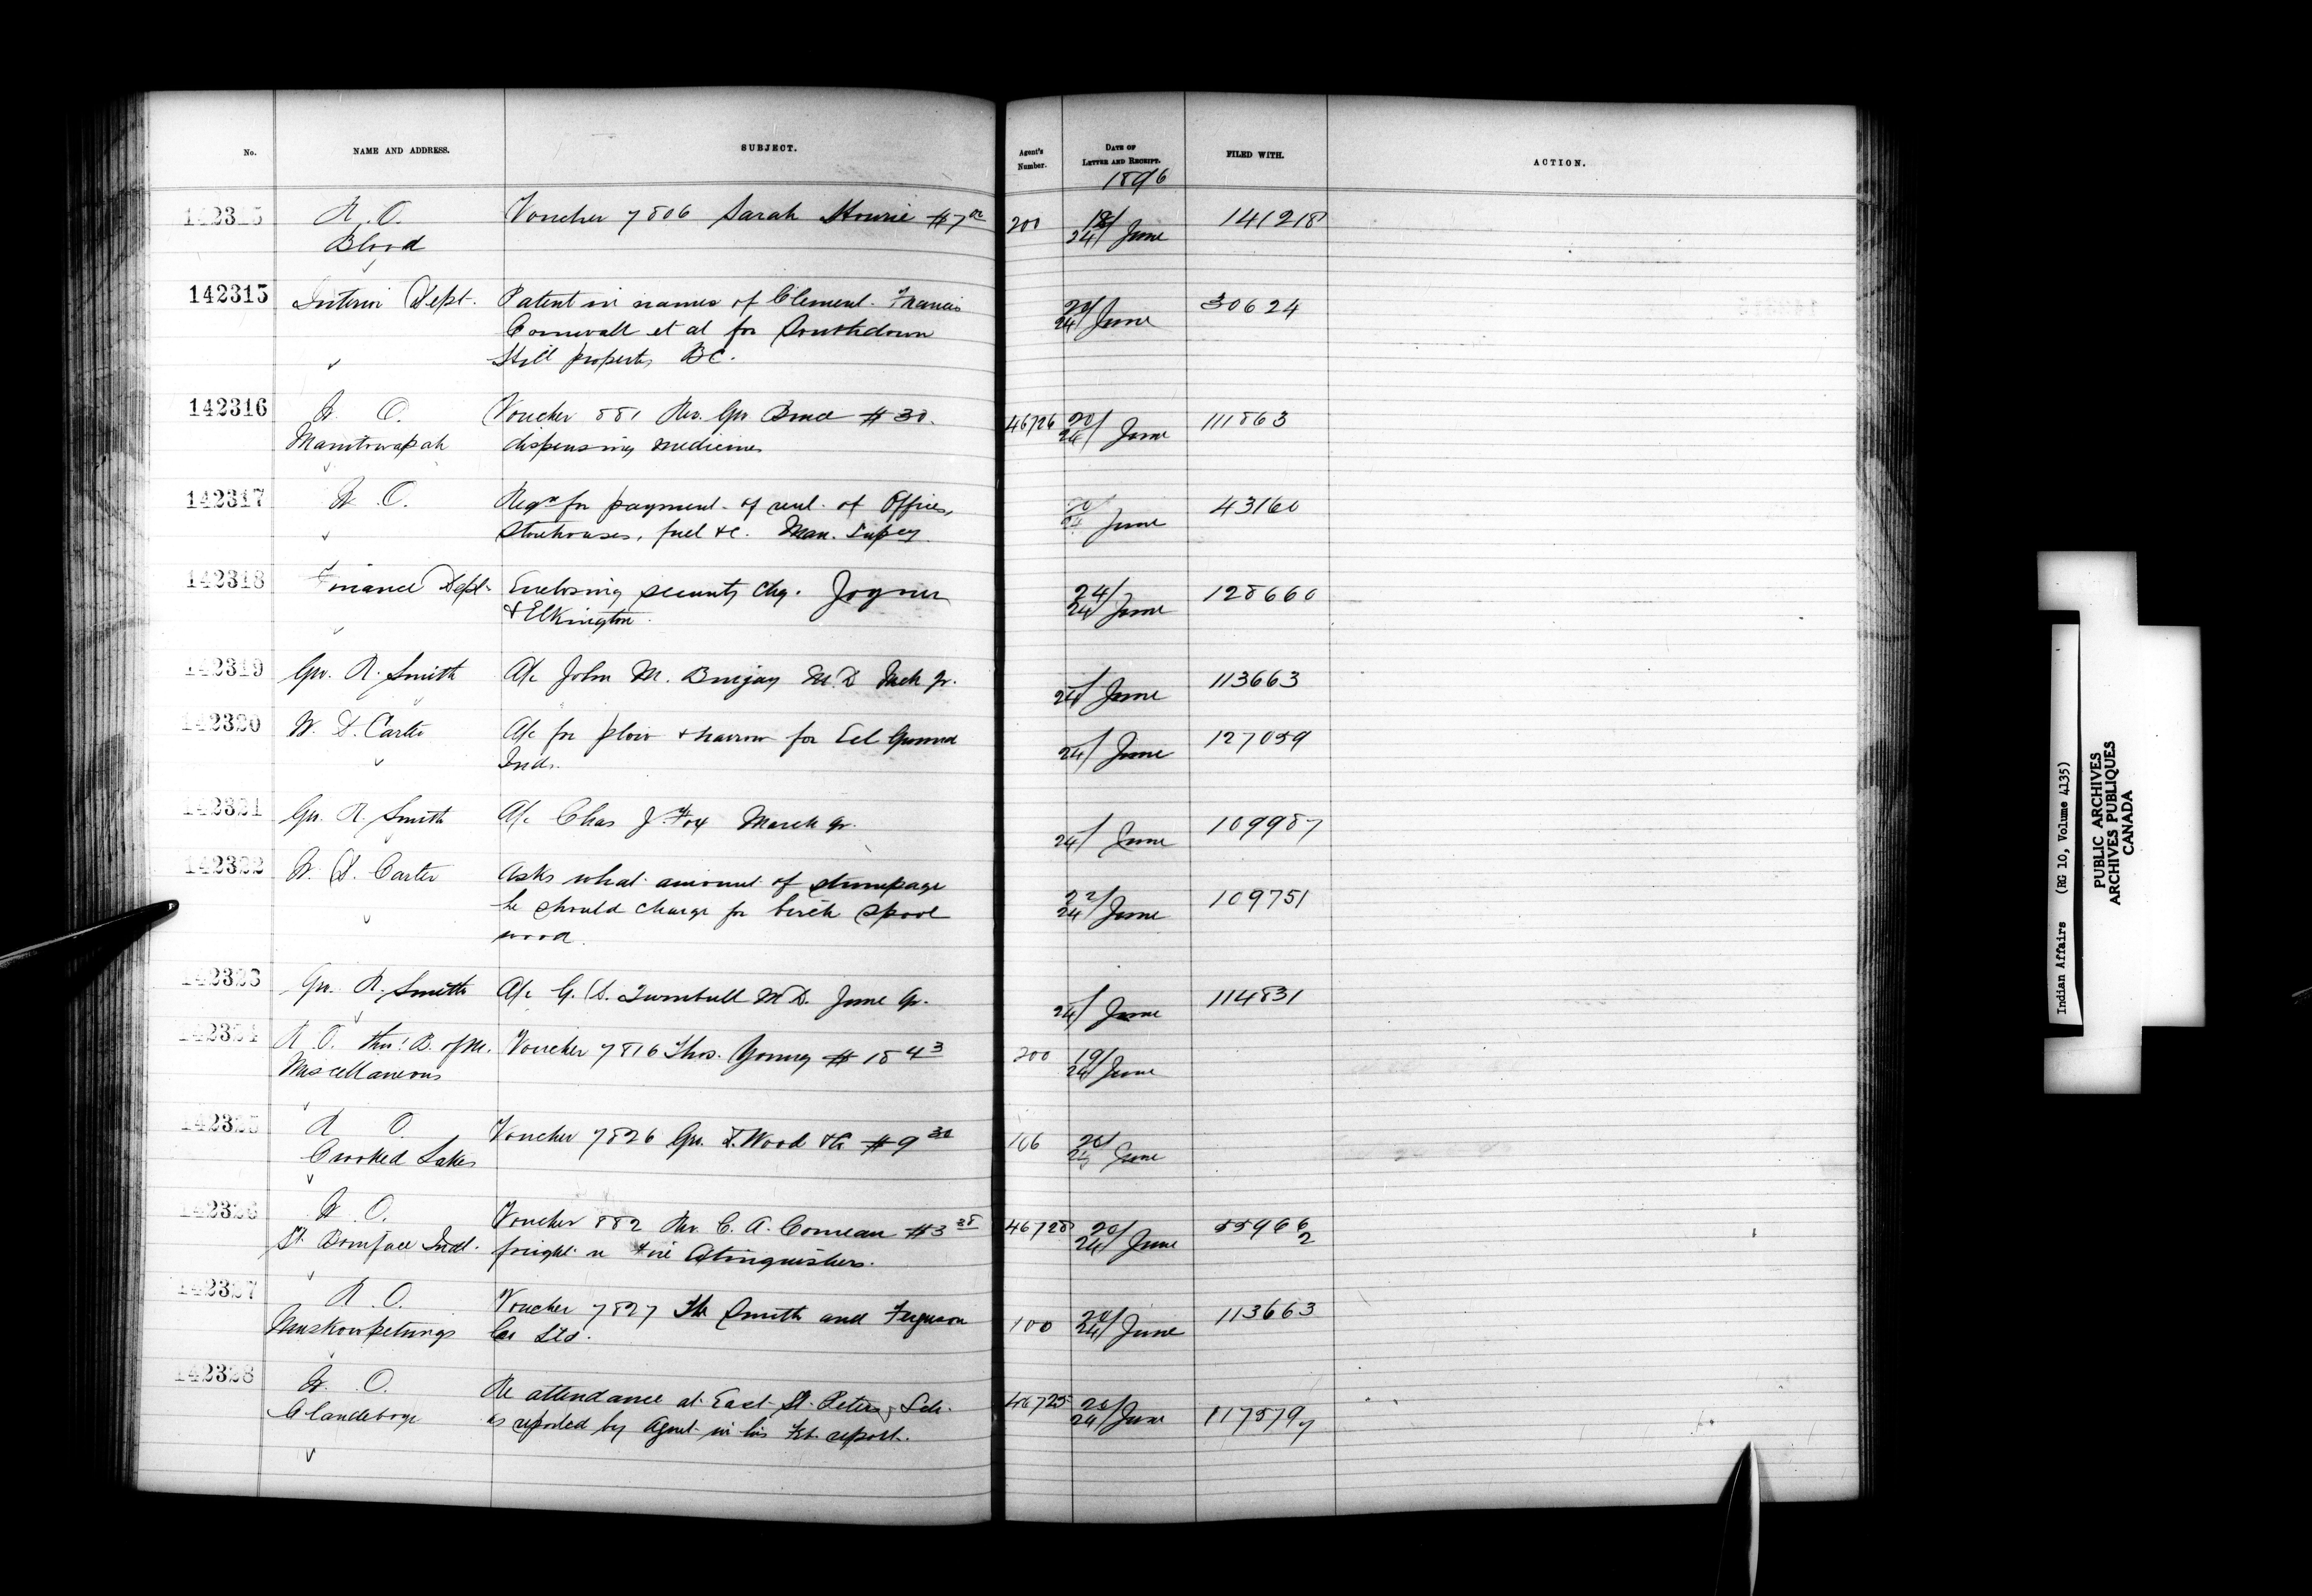 No.
NAME AND ADDRESS.
SUBJECT.
Agent's Number.
DATE OF LETTER AND RECEIPT.
FILED WITH.
ACTION.
1896
142315 R. O. Voucher 7806 Sarah Hourie $7 00 200 18/ 24/ June 141218
Blood
142315 Interior Dept. Patent in names of Clement Francis 20/ 24/ June 30624
Cornwall et al for Southdown
Hill property BC.
142316 W. O. Voucher 881 Rev. Geo. Bruce $30. 46726 20/ 24/ June 111863
Manitowapah dispensing medicines
142317 W. O. Reqn for payment of rent of Offices, 20/ 24 June 43160
Storehouses, fuel &c. Man. Supcy
142318 Finance Dept. Enclosing security chq. Joyner 24/ 24/ June 128660
& Elkington.
142319 Geo. R. Smith A/c John M. M.D 24/ June 113663
142320 W. D. Carter A/c for plow & harrow for Eel Ground 24/ June 127059
Inds.
142321 Geo. R. Smith A/c Chas J. Fox March qr. 24/ June 109987
142322 W. D. Carter Asks what amount of stumpage 22/ 24/ June 109751
he should charge for birch spool
wood.
142323 Geo. R. Smith A/c G. D. Turnbull M.D. June qr. 24/ June 114831
142324 R. O. thro' B. of M. Voucher 7816 Thos. Young $18 43 200 19/ 24/ June
Miscellaneous
142325 R O. Voucher 7826 Geo. F. Wood &Co $9 30 106 20/ 24 June
Crooked Lakes
142326 W O. Voucher 882 Rev. C. A. Comeau $3 38 46728 20/ 24/ June 55966 2
St. Boniface Indl. freight on Fire Extinguishers.
142327 R. O. Voucher 7827 The Smith and Ferguson 100 20/ 24/ June 113663
Muskowpetungs Co Ltd.
142328 W. O. Re attendance at East St. Peters Sch. 46725 20/ 24/ June 117579 7
Clandeboye as reported by Agent in his Feb. report.
Indian Affairs (RG 10, Volume 4135)
PUBLIC ARCHIVES
ARCHIVES PUBLIQUES
CANADA